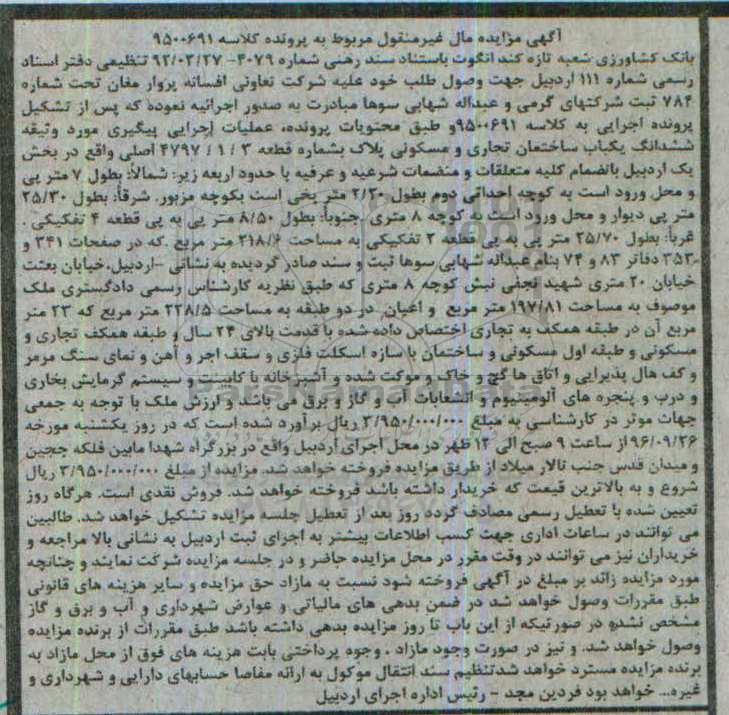 آگهی مزایده مال غیرمنقول مربوط به پرونده کلاسه ۹۵۰۰۶۹۱
بانک کشاورزی شعبه تازه کند انگوت باستناد سند رهنی شماره ۴۰۷۹- ۹۲/۰۲/۲۷ تنظیمی دفتر اسناد
رسمی شماره ۱۱۱ اردبیل جهت وصول طلب خود علیه شرکت تعاونی افسانه پرواز مغان تحت شماره
۷۸۴ ثبت شرکتهای گرمی و عبداله شهابی سوها مبادرت به صدور اجرائیه نموده که پس از تشکیل
پرونده اجرایی به کلاسه ۹۵۰۰۶۹۱و طبق محتویات پرونده، عملیات اجرایی پیگیری مورد وثیقه
ششدانگ یکباب ساختمان تجاری و مسکونی پلاک بشماره قطعه ۳ / ۱ / ۴۷۹۷ اصلی واقع در بخش
یک اردبیل بانضمام کلیه متعلقات و منضمات شرعیه و عرفیه با حدود اربعه زیر: شمالاً: بطول ۷ متر پی
و محل ورود است به کوچه احداثی دوم بطول ۲/۳۰ متر پخی است بکوچه مزبور. شرقاً: بطول ۲۵/۳۰
متر پی دیوار و محل ورود است به کوچه ۸ متری . جنوباً: بطول ۸/۵۰ متر پی به پی قطعه ۴ تفکیکی .
غرباً: بطول ۲۵/۷۰ متر پی به پی قطعه ۲ تفکیکی به مساحت ۲۱۸/۶ متر مربع .که در صفحات ۳۴۱ و
۳۵۳ـ دفاتر ۸۳ و ۷۴ بنام عبداله شهابی سوها ثبت و سند صادر گردیده به نشانی –اردبیل.خیابان بعثت
خیابان ۲۰ متری شهید نجفی نبش کوچه ۸ متری که طبق نظریه کارشناس رسمی دادگستری ملک
موصوف به مساحت ۱۹۷/۸۱ متر مربع و اعیان در دو طبقه به مساحت ۲۲۸/۵ متر مربع که ۲۳ متر
مربع آن در طبقه همکف به تجاری اختصاص داده شده با قدمت بالای ۲۴ سال و طبقه همکف تجاری و
مسکونی و طبقه اول مسکونی و ساختمان با سازه اسکلت فلزی و سقف اجر و آهن و نمای سنگ مرمر
و کف هال پذیرایی و اتاق ها گچ و خاک و موکت شده و آشپزخانه با کابینت و سیستم گرمایش بخاری
و درب و پنجره های آلومینیوم و انشعابات آب و گاز و برق می باشد و ارزش ملک با توجه به جمعی
جهات موثر در کارشناسی به مبلغ ۳/۹۵۰/۰۰۰/۰۰۰ ریال برآورد شده است که در روز یکشنبه مورخه
۹۶/۰۹/۲۶ از ساعت ۹ صبح الی ۱۲ ظهر در محل اجرای اردبیل واقع در بزرگراه شهدا مابین فلکه ججین
و میدان قدس جنب تالار میلاد از طریق مزایده فروخته خواهد شد. مزایده از مبلغ ۳/۹۵۰/۰۰۰/۰۰۰ ریال
شروع و به بالاترین قیمت که خریدار داشته باشد فروخته خواهد شد. فروش نقدی است. هرگاه روز
تعیین شده با تعطیل رسمی مصادف گردد روز بعد از تعطیل جلسه مزایده تشکیل خواهد شد. طالبین
می توانند در ساعات اداری جهت کسب اطلاعات بیشتر به اجرای ثبت اردبیل به نشانی بالا مراجعه و
خریداران نیز می توانند در وقت مقرر در محل مزایده حاضر و در جلسه مزایده شرکت نمایند و چنانچه
مورد مزایده زائد بر مبلغ در آگهی فروخته شود نسبت به مازاد حق مزایده و سایر هزینه های قانونی
طبق مقررات وصول خواهد شد در ضمن بدهی های مالیاتی و عوارض شهرداری و آب و برق و گاز
مشخص نشده در صورتیکه از این باب تا روز مزایده بدهی داشته باشد طبق مقررات از برنده مزایده
وصول خواهد شد. و نیز در صورت وجود مازاد ، وجوه پرداختی بابت هزینه های فوق از محل مازاد به
برنده مزایده مسترد خواهد شدتنظیم سند انتقال موکول به ارائه مفاصا حسابهای دارایی و شهرداری و
غیره... خواهد بود فردین مجد - رئیس اداره اجرای اردبیل